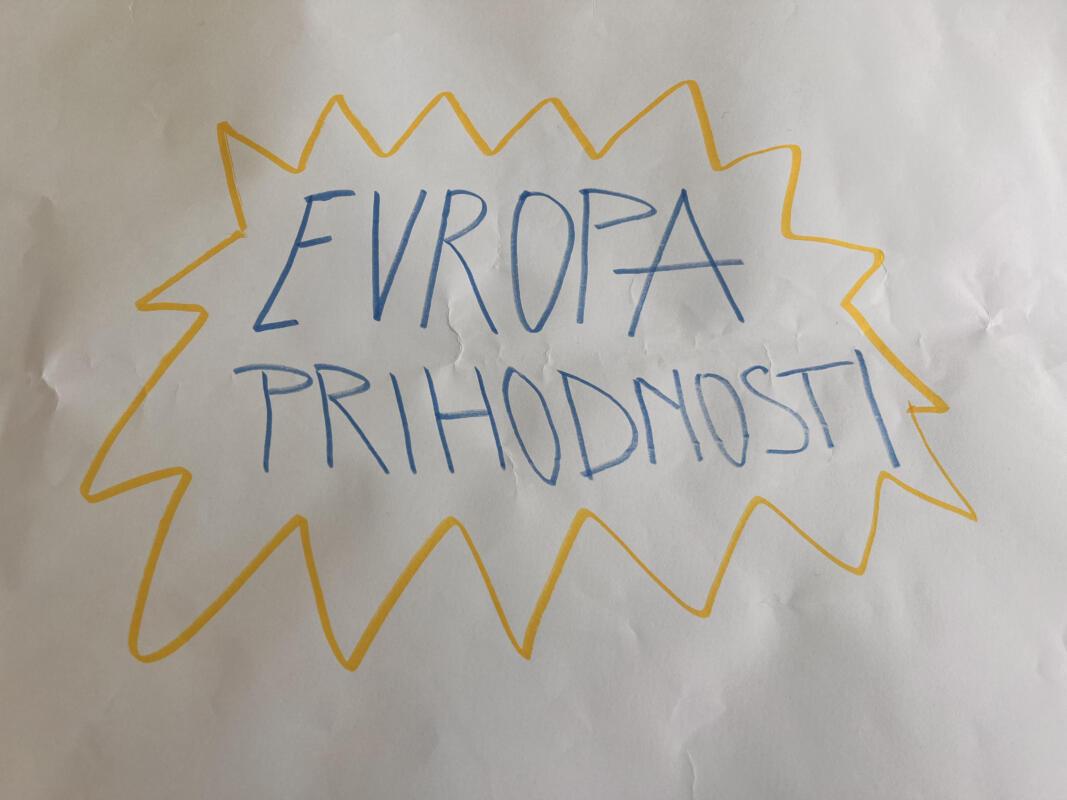 EVROPA
PRIHODNOSTI